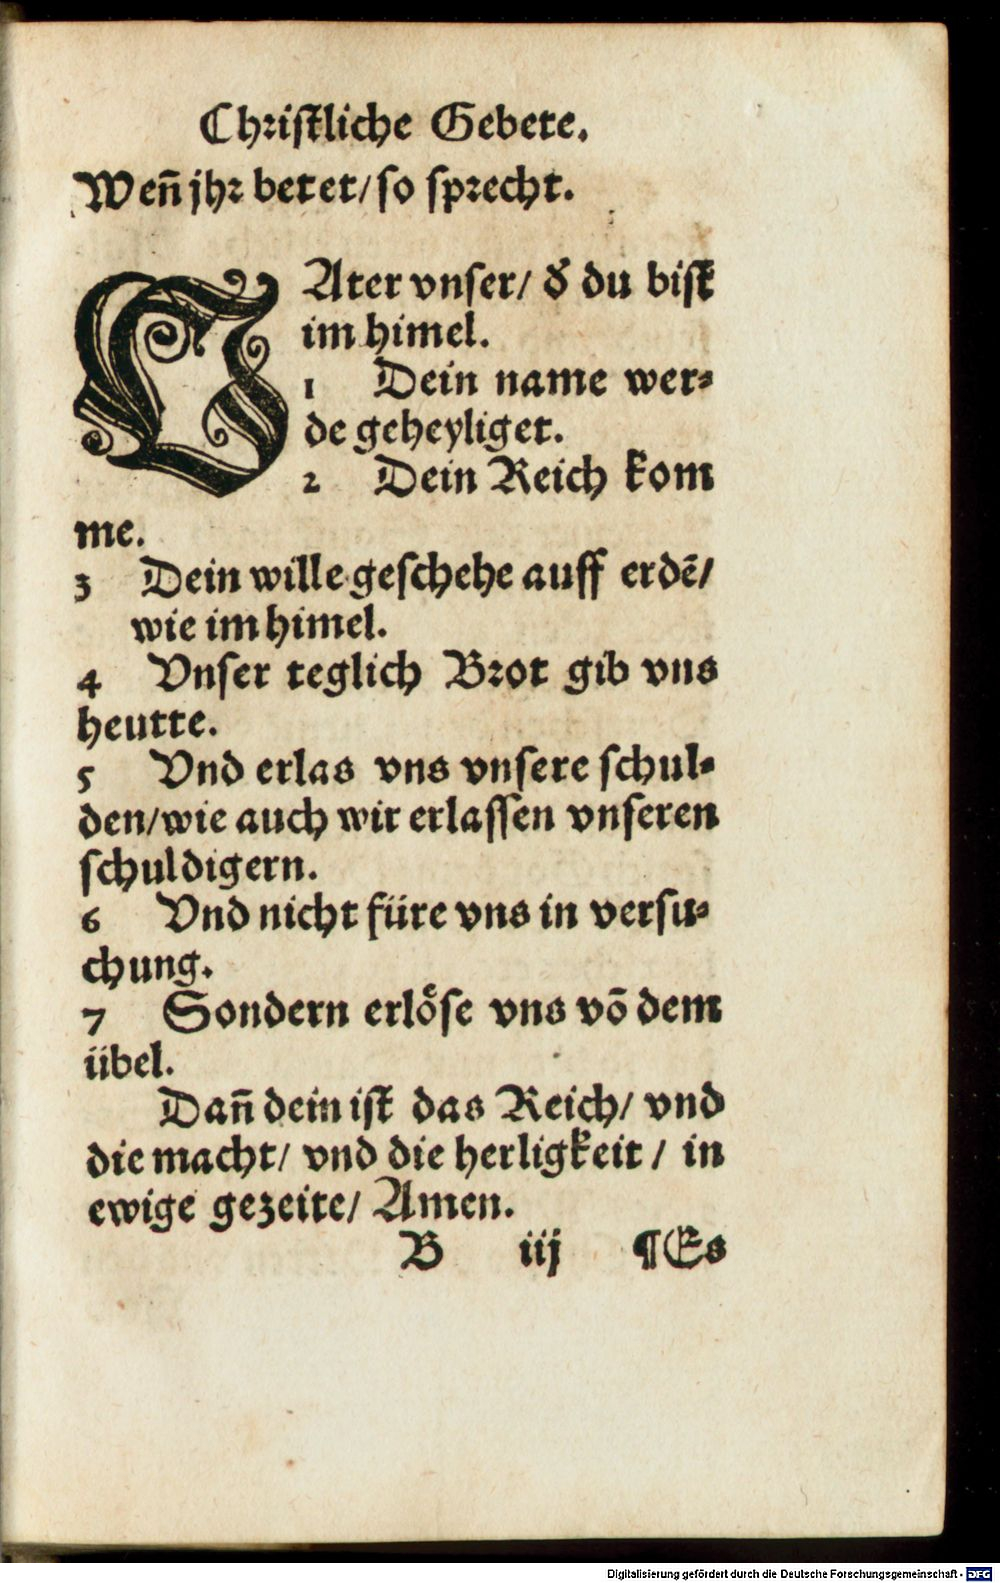 Chriſtliche Gebete.
Weñ jhr betet/ ſo ſprecht.
VAter vnſer/ d̕ du biſt
im himel.
1 Dein name wer⸗
de geheyliget.
2 Dein Reich kom
me.
3 Dein wille geſchehe auff erdē/
wie im himel.
4 Vnſer teglich Brot gib vns
heutte.
5 Vnd erlas vns vnſere ſchul⸗
den/ wie auch wir erlaſſen vnſeren
ſchuldigern.
6 Vnd nicht füre vns in verſu⸗
chung.
7 Sondern erlöſe vns võ dem
übel.
Dañ dein iſt das Reich/ vnd
die macht/ vnd die herligkeit/ in
ewige gezeite/ Amen.
B iij ¶Es
Digitalisierung gefördert durch die Deutsche Forschungsgemeinschaft - DFG